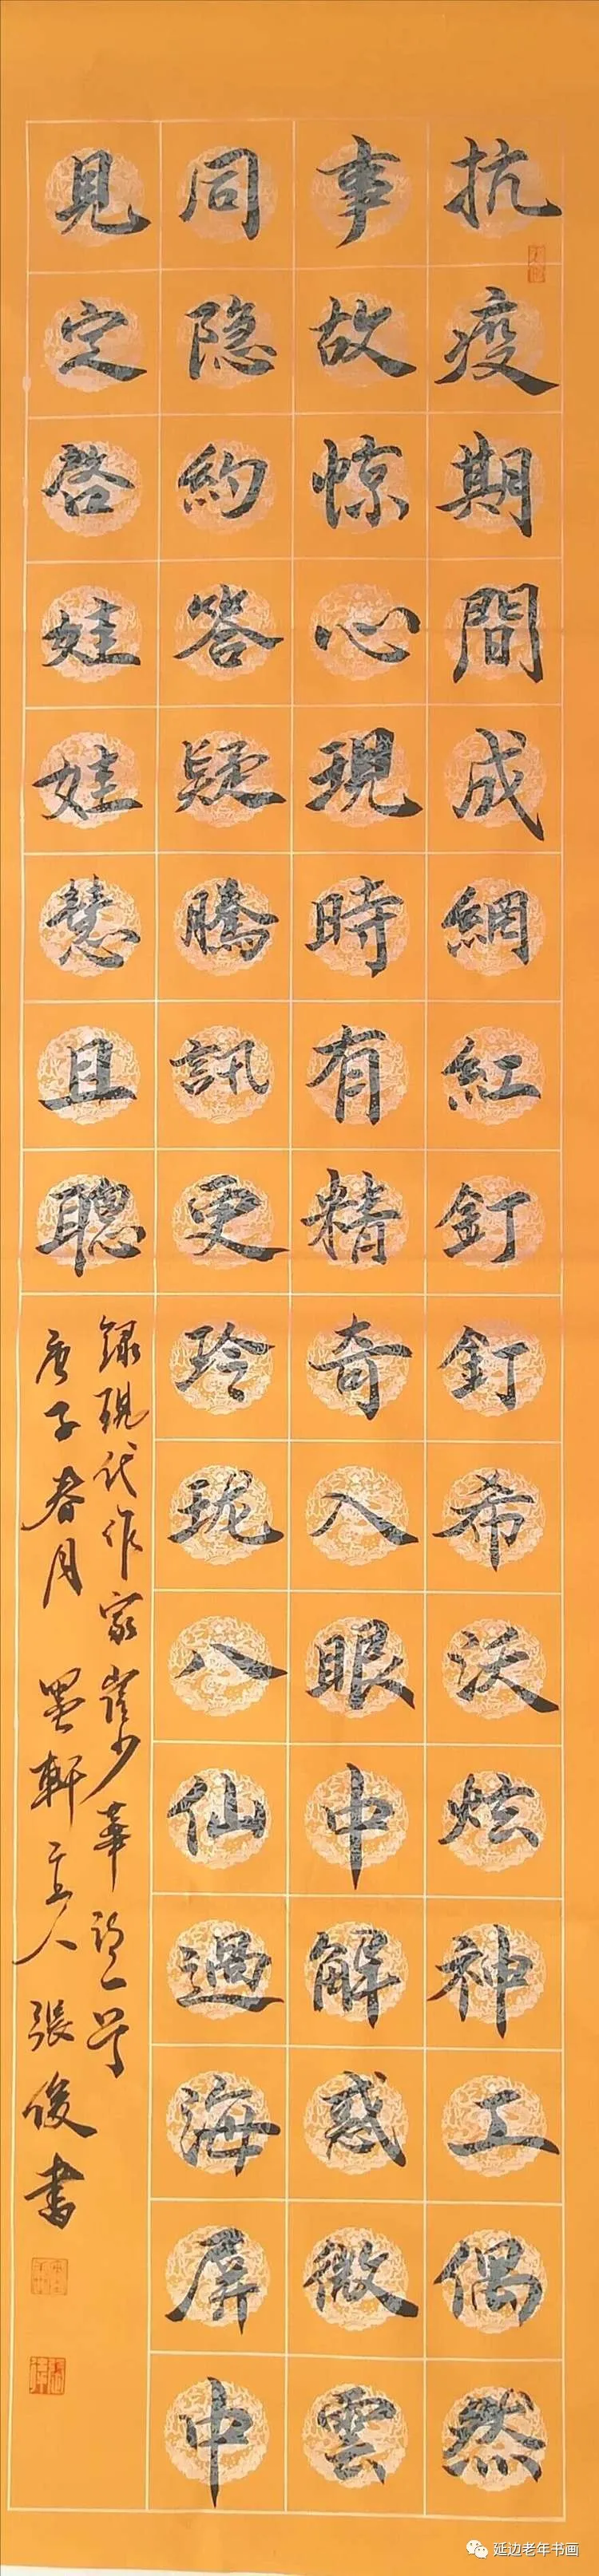 抗疫期間成網紅釘釘希沃炫神工偶然
事故惊心現時有精奇入眼中解惑微雲
同隐約答疑騰訊更玲珑八仙過海屏中
見定啓娃娃慧且聰
錄現代作家崔少華詩一首
庚子春月 墨軒主人 張俊書
延边老年书画